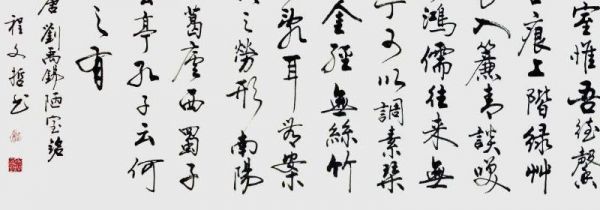 室惟吾德馨
痕上階緑艸
入簾青談咲
鴻儒往来無
丁可以調素琴
金經無絲竹
亂耳無案
之勞形南陽
葛廬西蜀子
云亭孔子云何
之有
唐劉禹錫陋室銘
程文哲书